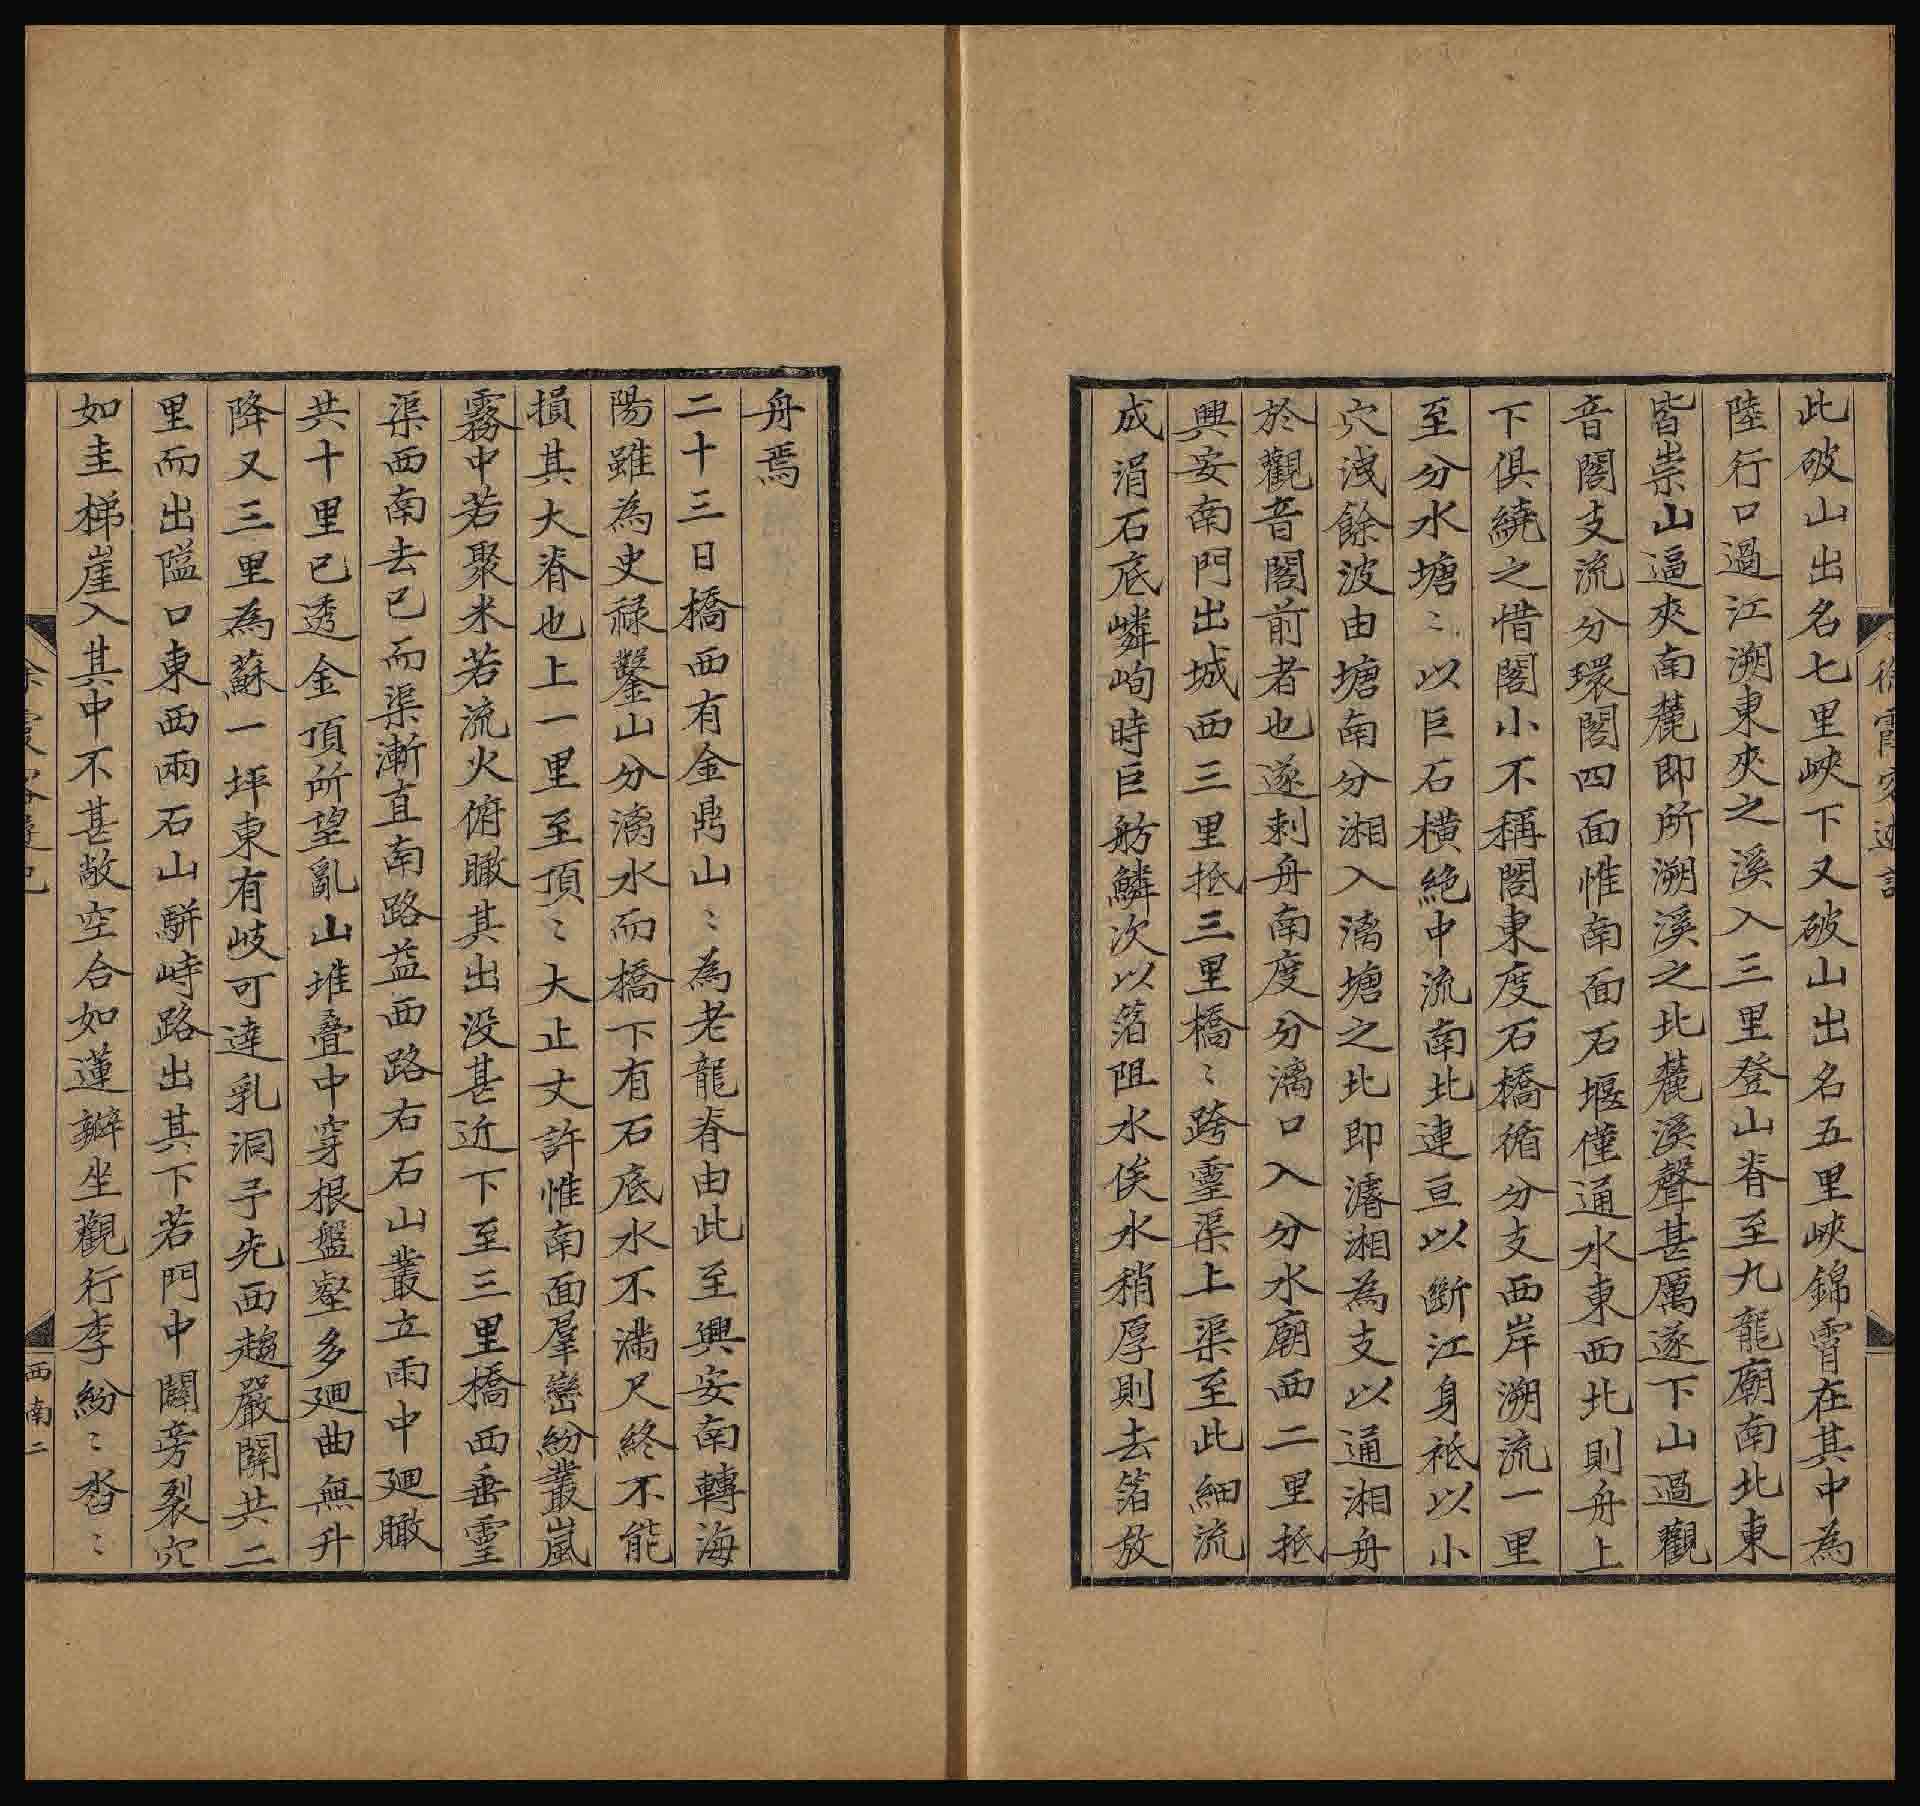 此破山出名七里峽下又破山出名五里峽錦霄在其中為
陸行口過江溯東夾之溪入三里登山脊至九龍廟南北東
皆崇山逼夾南麓即所溯溪之北麓溪聲甚厲遂下山過觀
音閣支流分環閣四面惟南面石堰僅通水東西北則舟上
下俱繞之惜閣小不稱閣東度石橋循分支西岸溯流一里
至分水塘〻以巨石橫絶中流南北連亘以斷江身袛以小
穴洩餘波由塘南分湘入漓塘之北即濬湘為支以通湘舟
於觀音閣前者也遂刺舟南度分漓口入分水廟西二里抵
興安南門出城西三里抵三里橋〻跨靈渠上渠至此細流
成涓石底嶙峋時巨舫鱗次以箔阻水俟水稍厚則去箔放
舟焉
二十三日橋西有金鼎山〻為老龍脊由此至興安南轉海
陽雖為史祿鑿山分漓水而橋下有石底水不滿尺終不能
損其大脊也上一里至頂〻大止丈許惟南面羣巒紛叢嵐
霧中若聚米若流火俯瞰其出没甚近下至三里橋西垂靈
渠西南去已而渠漸直南路益西路右石山叢立雨中廻瞰
共十里已透金頂所望亂山堆疊中穿根盤壑多廻曲無升
降又三里為蘇一坪東有岐可達乳洞予先西趨嚴關共二
里而出隘口東西兩石山駢峙路出其下若門中闢旁裂穴
如圭梯崖入其中不甚敞空合如蓮瓣坐觀行李紛〻沓〻
西南二